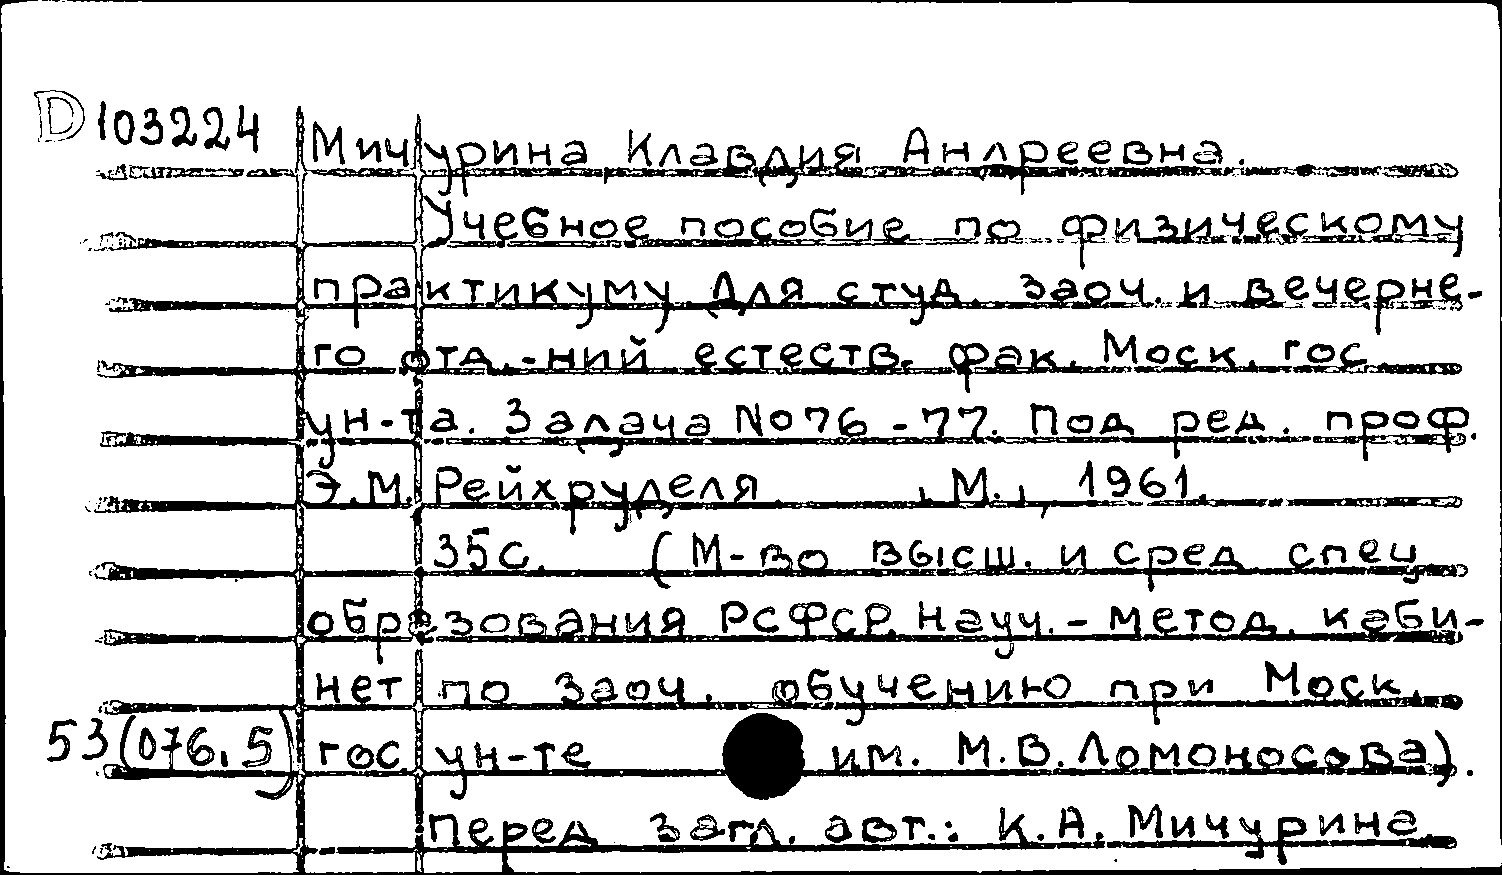 D 103224
Мичурина, Клавдия Андреевна.
Учебное пособие по физическому
практикуму. Для студ. заоч. и вечерне-
го отд.-ний естеств. фак. Моск. гос.
ун-та. Задача No 76 - 77. Под ред. проф.
Э.М. Рейхруделя. М., 1961.
35с. (М-во высш. и сред. спец.
образования РСФСР. Науч.-метод. каби-
нет по заоч. обучению при Моск.
53(076.5) гос. ун-те им. М.В. Ломоносова).
Перед загл. авт.: К.А. Мичурина.